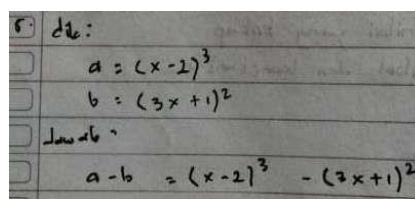 5. dik :
a = (x-2)³
b = (3x+1)²
Jawab :
a-b = (x-2)³ - (3x+1)²